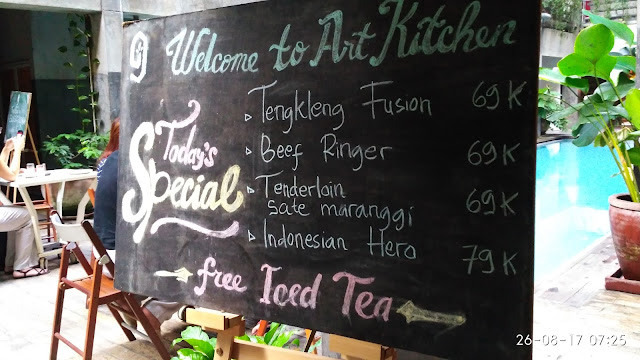 Welcome to Art Kitchen
Today's
Special
Tengkleng Fusion 69K
Beef Ringer 69K
Tenderloin
sate maranggi 69K
Indonesian Hero 79K
free Iced Tea
26-08-17 07:25